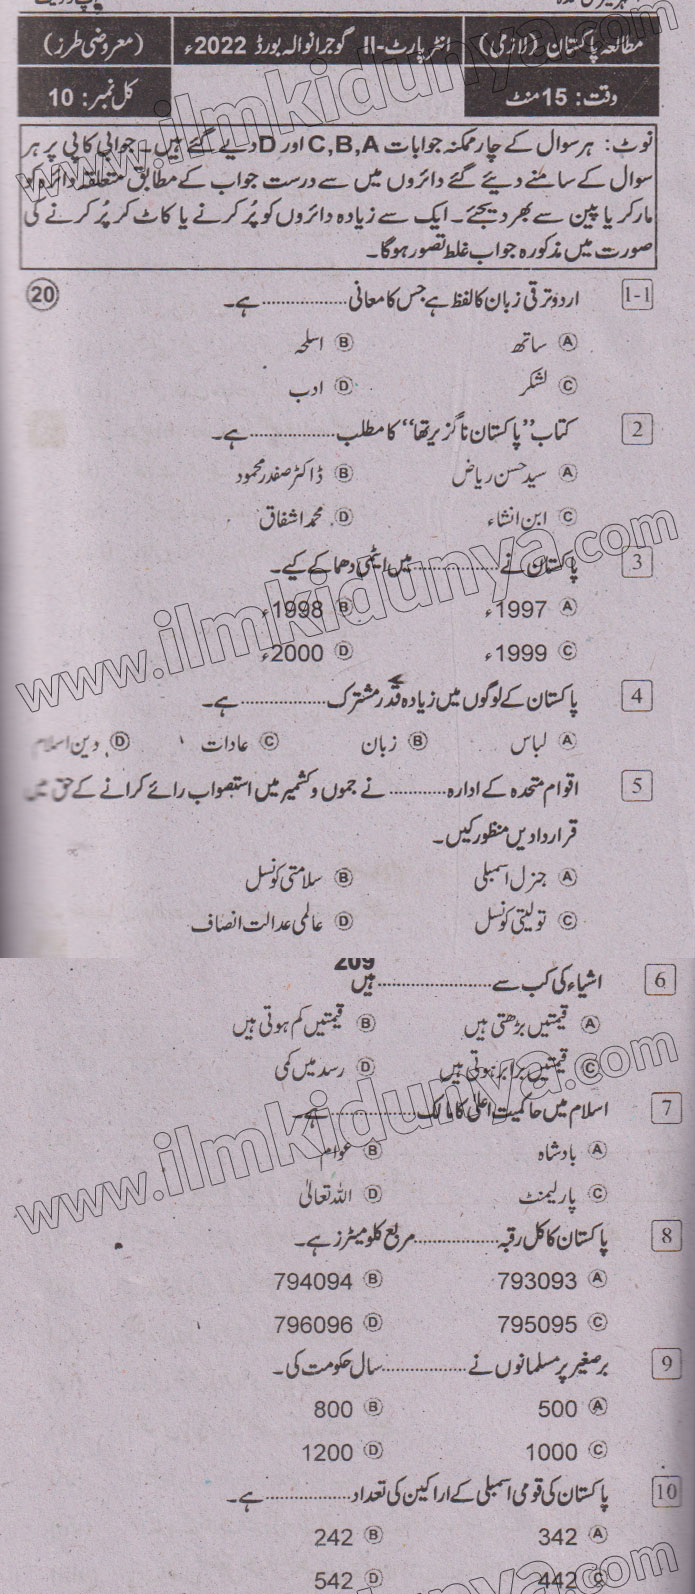 مطالعہ پاکستان (لازمی)
انٹر پارٹ-II گوجرانوالہ بورڈ 2022ء
(معروضی طرز)
وقت: 15 منٹ
کل نمبر: 10
نوٹ: ہر سوال کے چار ممکنہ جوابات A,B,C اور D دیے گئے ہیں۔ جوابی کاپی پر ہر
سوال کے سامنے دیئے گئے دائروں میں سے درست جواب کے مطابق متعلقہ دائرہ کو
مارکر یا پین سے بھر دیجئے۔ ایک سے زیادہ دائروں کو پُر کرنے یا کاٹ کر پُر کرنے کی
صورت میں مذکورہ جواب غلط تصور ہوگا۔
1-1 اردو ترقی زبان کا لفظ ہے جس کا معانی ................ ہے۔ 20
A ساتھ B اسلحہ
C لشکر D ادب
2 کتاب "پاکستان ناگزیر تھا" کا مطلب ................ ہے۔
A سید حسن ریاض B ڈاکٹر صفدر محمود
C ابن انشاء D محمد اشفاق
3 پاکستان نے ................ میں ایٹمی دھماکے کیے۔
A 1997ء B 1998ء
C 1999ء D 2000ء
4 پاکستان کے لوگوں میں زیادہ قدر مشترک ................ ہے۔
A لباس B زبان C عادات D دین اسلام
5 اقوام متحدہ کے ادارہ ............ نے جموں و کشمیر میں استصواب رائے کرانے کے حق میں
قراردادیں منظور کیں۔
A جنرل اسمبلی B سلامتی کونسل
C تولیتی کونسل D عالمی عدالت انصاف
209
6 اشیاء کی کب سے ................ ہیں
A قیمتیں بڑھتی ہیں B قیمتیں کم ہوتی ہیں
C قیمتیں برابر ہوتی ہیں D رسد میں کمی
7 اسلام میں حاکمیت اعلیٰ کا مالک ................ ہے۔
A بادشاہ B عوام
C پارلیمنٹ D اللہ تعالیٰ
8 پاکستان کا کل رقبہ ................ مربع کلومیٹرز ہے۔
A 793093 B 794094
C 795095 D 796096
9 برصغیر پر مسلمانوں نے ................ سال حکومت کی۔
A 500 B 800
C 1000 D 1200
10 پاکستان کی قومی اسمبلی کے اراکین کی تعداد ................ ہے۔
A 342 B 242
C 442 D 542
www.ilmkidunya.com
www.ilmkidunya.com
www.ilmkidunya.com